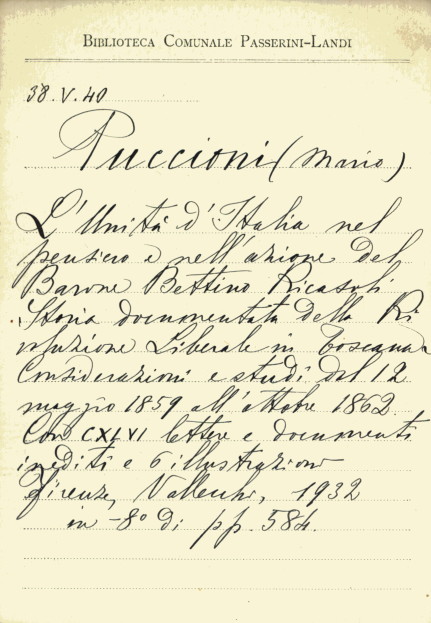 BIBLIOTECA COMUNALE PASSERINI-LANDI
38.V.40
Puccioni (Mario)
L'Unità d'Italia nel
pensiero e nell'azione del
Barone Bettino Ricasoli
Storia documentata della Ri
voluzione Liberale in Toscana
Considerazioni e studi dal 12
maggio 1859 all'ottobre 1862.
Con CXLVI lettere e documenti
inediti e 6 illustrazioni
Firenze, Vallecchi, 1932
in -8º di pp. 584.